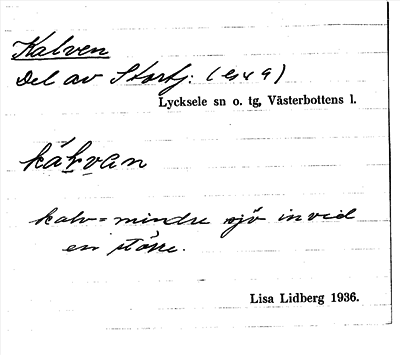 Kalven
Del av Stortj: (esx9)
Lycksele sn o. tg, Västerbottens l.
kálvan
kalv = mindre sjö invid
en större.
Lisa Lidberg 1936.